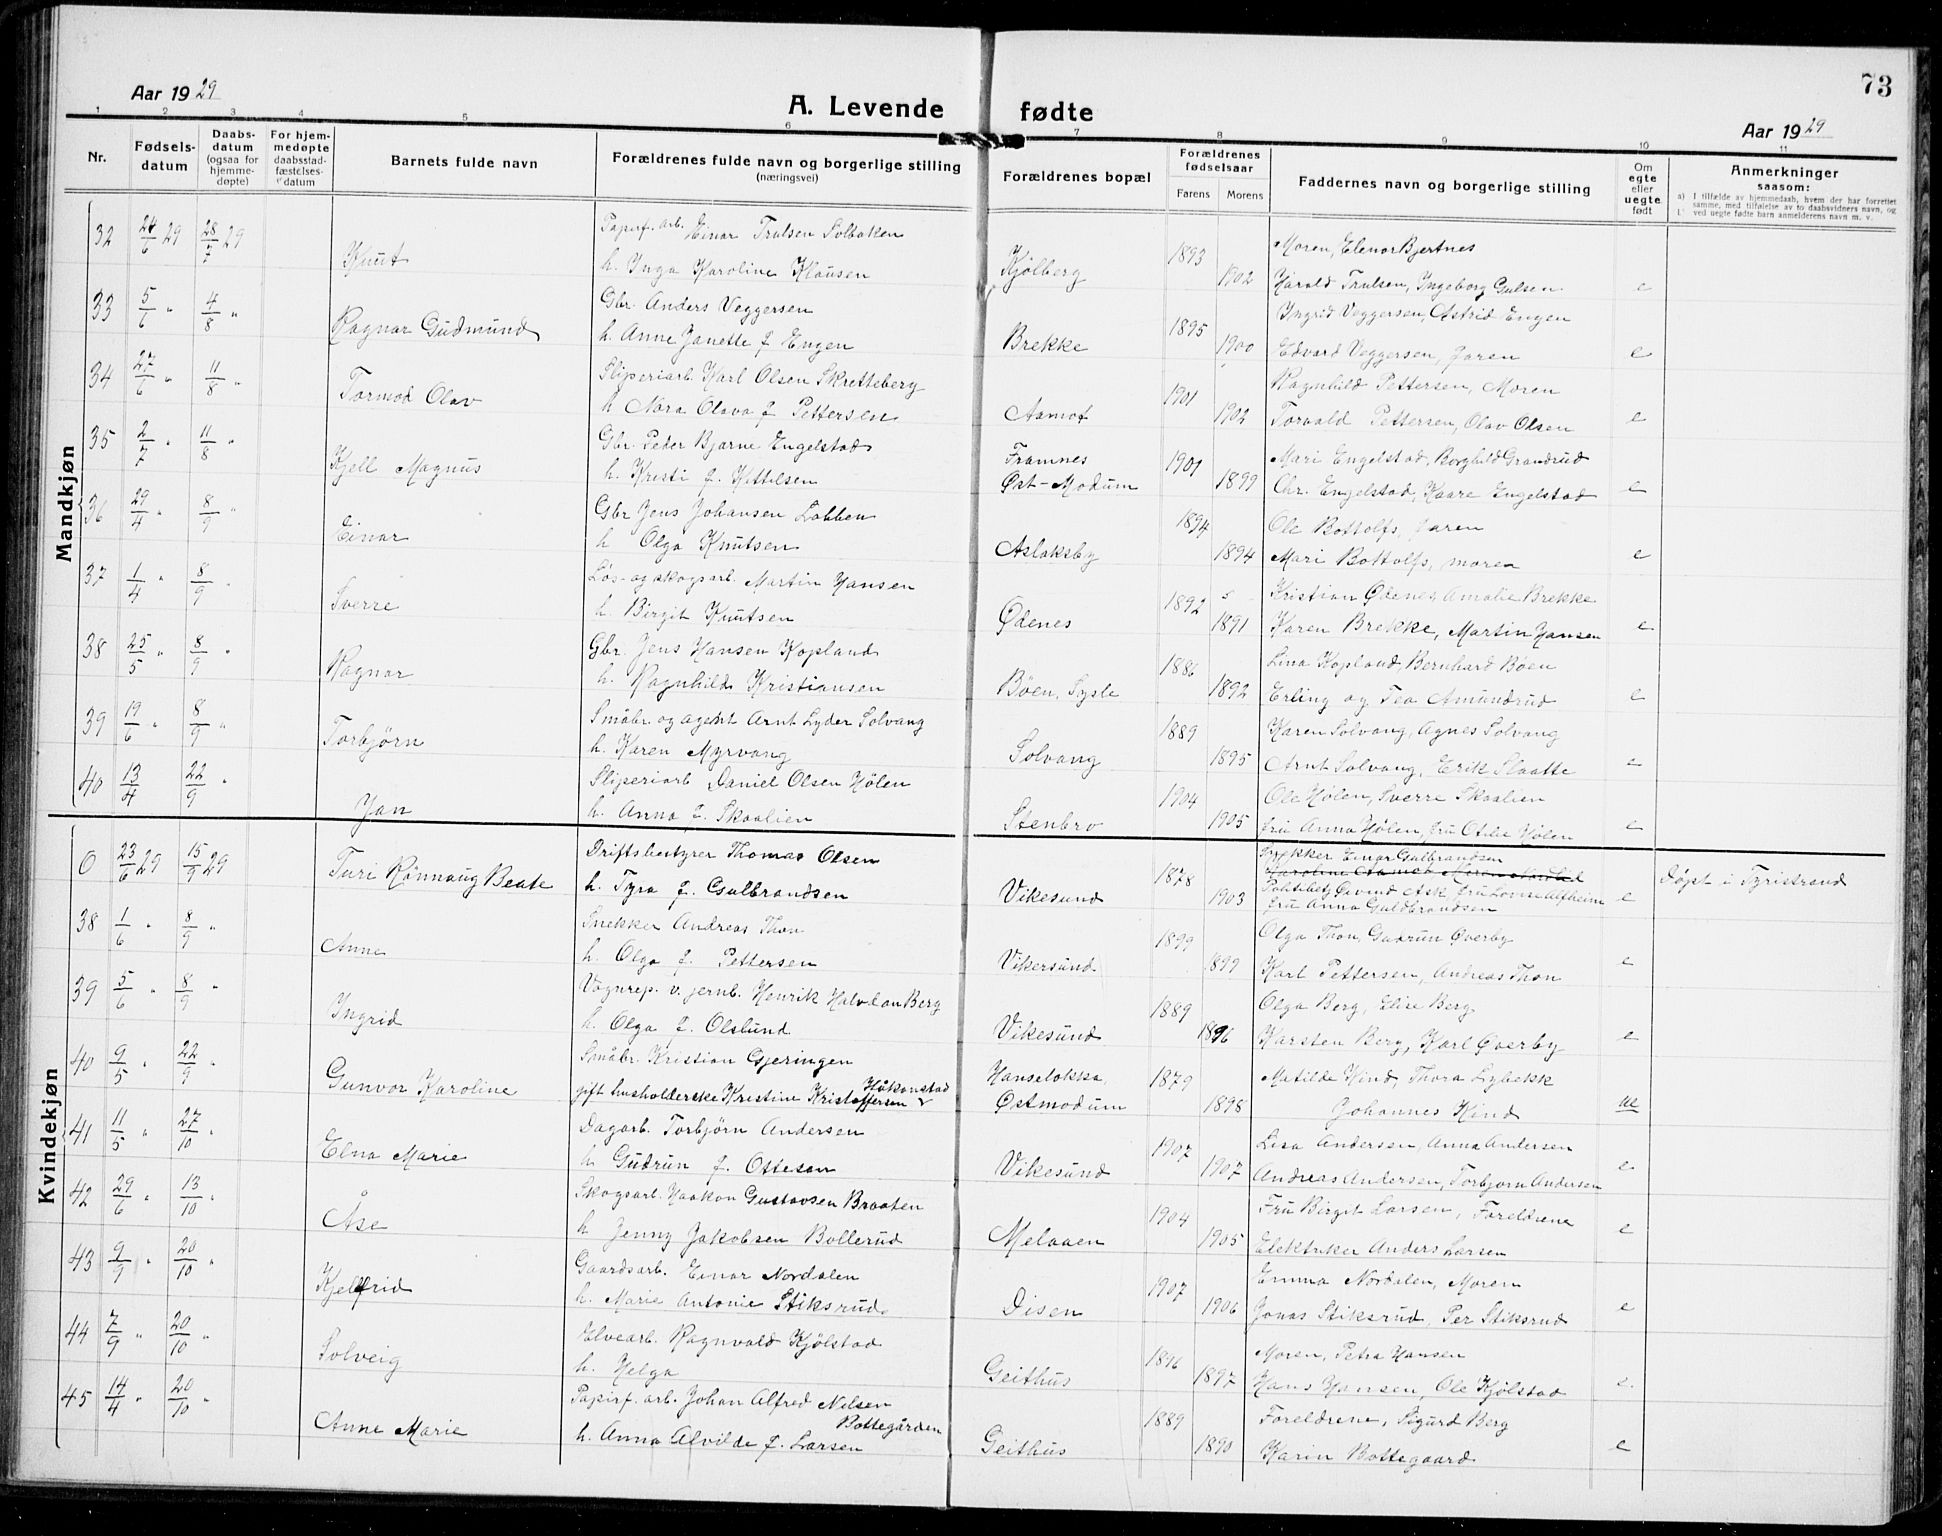 73
Aar 1929
A. Levende fødte
Aar 1929
1 2 3 4 5 6 7 8 9 10 11
Nr.
Fødselsdatum
Daabsdatum (ogsaa for hjemmedøpte)
For hjemmedøpte daabsstadfæstelsesdatum
Barnets fulde navn
Forældrenes fulde navn og borgerlige stilling (næringsvei)
Forældrenes bopæl
Forældrenes fødselsaar
Farens Morens
Faddernes navn og borgerlige stilling
Om egte eller uegte født
Anmerkninger saasom:
a) I tilfælde av hjemmedaab, hvem der har forrettet samme, med tilføielse av to daabsvidners navn, og ved uegte fødte barn anmelderens navn m. v.
Mandkjøn
32 24/6 29 28/7 29 Papirf. arb. Einar Trulsen Solbakken 1893 Moren, Elenor Bjertnes
Knut h. Inga Karoline Klausen Kjölberg 1902 Harald Trulsen, Ingeborg Gulsen e
33 5/6 " 4/8 " Gbr. Anders Veggersen 1895 Ingrid Veggersen, Astrid Engen
Ragnar Gudmund h. Anne Janette f. Engen Brekke 1900 Edvard Veggersen, faren e
34 27/6 " 11/8 " Sliperiarb. Karl Olsen Skretteberg 1901 Ragnhild Pettersen, Moren
Tormod Olav h Nora Olava f Pettersen Aamot 1902 Torvald Pettersen, Olav Olsen e
35 2/7 " 11/8 " Gbr. Peder Bjarne Engelstad Framnes 1901 Mari Engelstad, Borghild Grandrud
Kjell Magnus h. Kresti f. Kittilsen Øst-Modum 1899 Chr. Engelstad, Kaare Engelstad e
36 29/4 " 8/9 " Gbr Jens Johansen Lobben 1894 Ole Bottolfs, faren
Einar h Olga Knutsen Aslaksby 1894 Mari Bottolfs, moren e
37 1/4 " 8/9 " Løs- og skogsarb. Martin Hansen 1892 Kristian Ødenes, Amalie Brekke
Sverre h. Birgit Knutsen Ødenes 1891 Karen Brekke, Martin Hansen e
38 25/5 " 8/9 " Gbr. Jens Hansen Kopland 1886 Lina Kopland, Bernhard Bøen
Ragnar h. Ragnhild Kristiansen Bøen, Sysle 1892 Erling og Tea Amundrud e
39 19/6 " 8/9 " Småbr. og agent Arnt Lyder Solvang 1889 Karen Solvang, Agnes Solvang
Torbjørn h. Karen Myrvang Solvang 1895 Arnt Solvang, Erik Slaatte e
40 13/4 22/9 " Sliperiarb Daniel Olsen Hølen 1904 Ole Hølen, Sverre Skaalien
Jan h. Anna f. Skaalien Stenbro 1905 fru Anna Hølen, fru Otilie Hølen e
Kvindekjøn
0 23/6 29 15/9 29 Driftsbestyrer Thomas Olsen 1878 Snekker Einar Gulbrandsen
Turi Rønnaug Beate h. Tyra f. Gulbrandsen Vikesund 1903 Øivind Ask, fru Lovise Alfheim e Døpt i Tyristrand
fru Anna Guldbrandsen
38 1/6 " 8/9 " Snekker Andreas Thon 1899 Olga Thon, Gudrun Øverby
Anne h. Olga f. Pettersen Vikersund 1899 Karl Pettersen, Andreas Thon e
39 5/6 " 8/9 " Vognrep. v. jernb. Henrik Halvdan Berg 1889 Olga Berg, Elise Berg
Ingrid h. Olga f. Olslund Vikesund 1896 Karsten Berg, Karl Øverby e
40 9/5 " 22/9 " Småbr. Kristian Gjeringen Hanselokka, 1879 Matilde Hind, Thora Lybekk
Gunvor Karoline gift husholderske Kristine Kristoffersen Håkonstad Østmodum 1898 Johannes Hind ue
41 11/5 " 27/10 " Dagarb. Torbjørn Andersen 1907 Lisa Andersen, Anna Andersen
Elna Marie h Gudrun f. Ottesen Vikesund 1907 Andreas Andersen, Torbjørn Andersen e
42 29/6 " 13/10 " Skogsarb. Haakon Gustavsen Braaten 1904 Fru Birgit Larsen, Foreldrene
Åse h Jenny Jakobsen Bollerud Melaaen 1905 Elektriker Anders Larsen e
43 9/9 " 20/10 " Gaardsarb. Einar Nordalen 1907 Emma Nordalen, Moren
Kjellfrid h. Marie Antonie Stiksrud Disen 1906 Jonas Stiksrud, Per Stiksrud e
44 7/9 " 20/10 " Elvearb. Ragnvald Kjølstad 1896 Moren, Petra Hansen
Solveig h. Helga Geithus 1897 Hans Hansen, Ole Kjølstad e.
45 14/4 " 20/10 " Papirf. arb. Johan Alfred Nilsen Bottegården 1889 Foreldrene, Sigurd Berg
Anne Marie h. Anna Alvilde f. Larsen Geithus 1890 Karin Bottegaard e